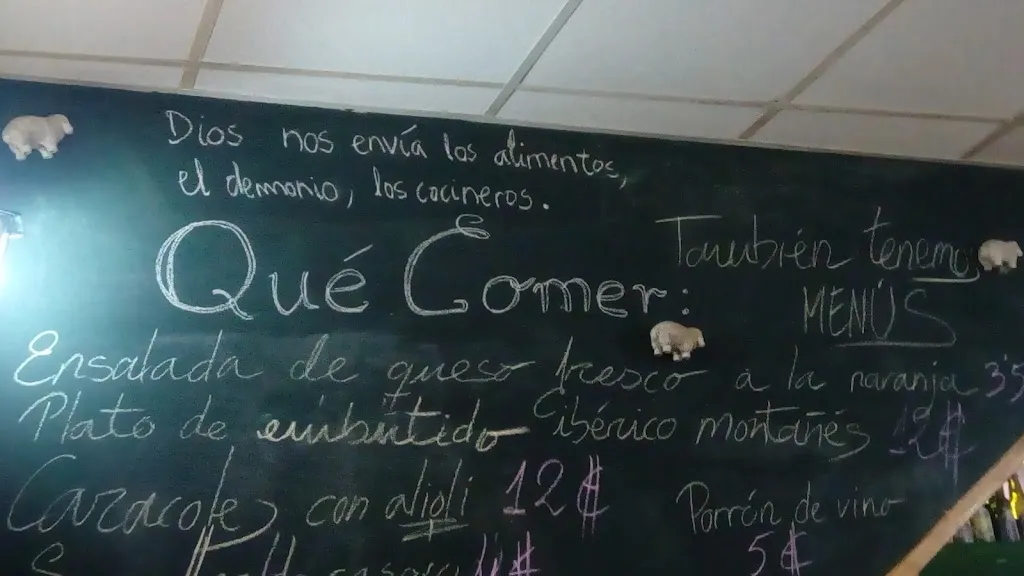 Dios nos envía los alimentos,
el demonio, los cocineros.
Qué Comer:
También tenemos
MENÚS
Ensalada de queso fresco a la naranja 3'5
Plato de embutido ibérico montañés 12€
Caracoles con alioli 12€
Porrón de vino
5€